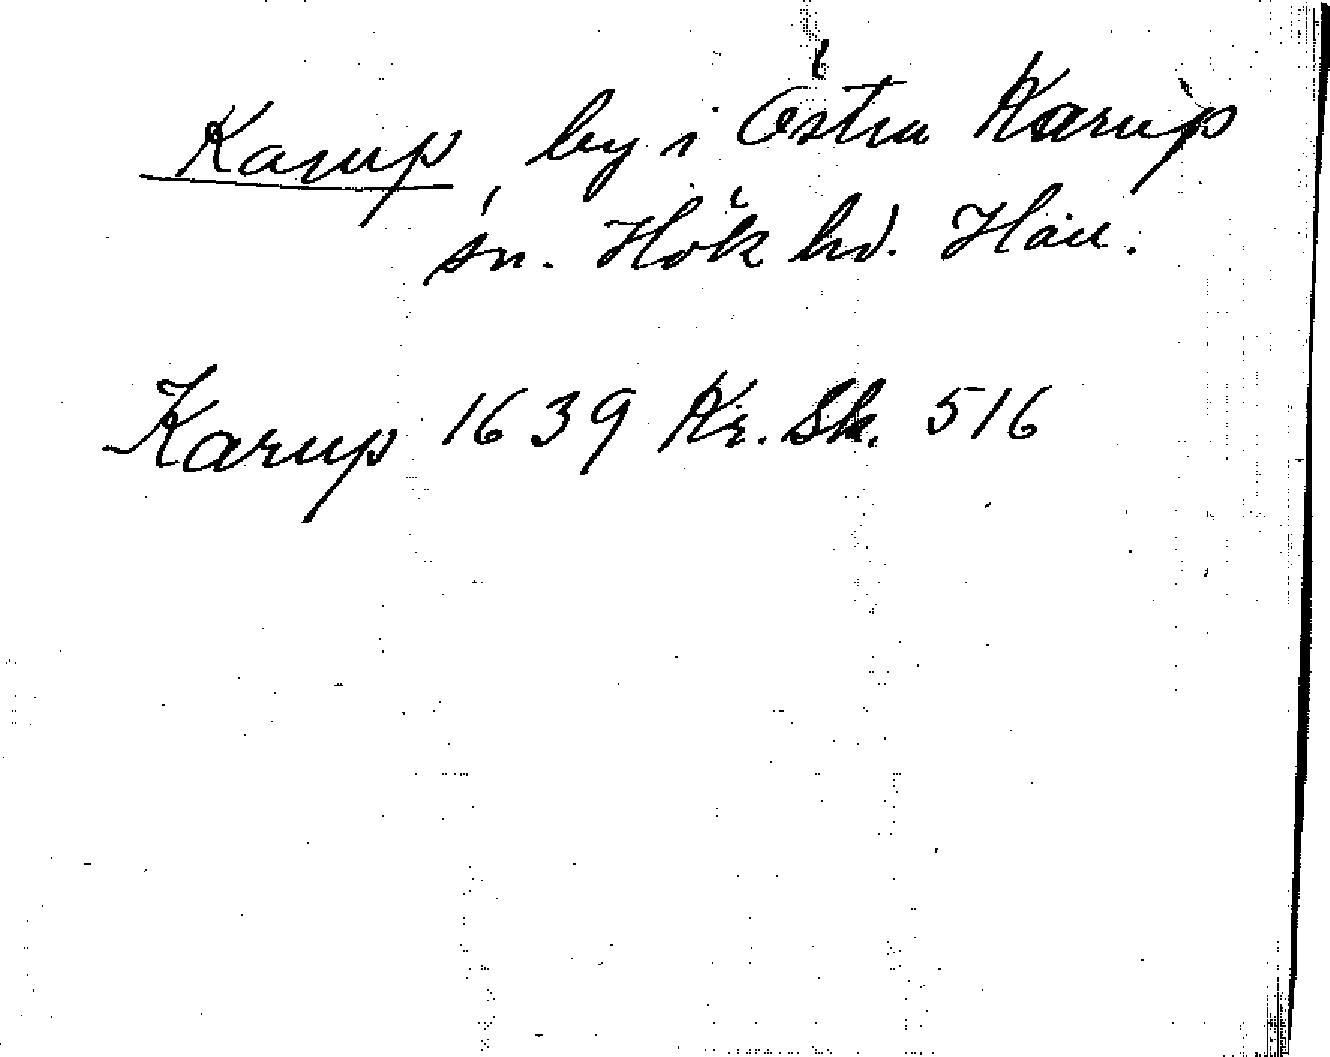 Karup by i Östra Karup
sn. Hök hd. Hall.
Karup 1639 Kr. Sk. 516